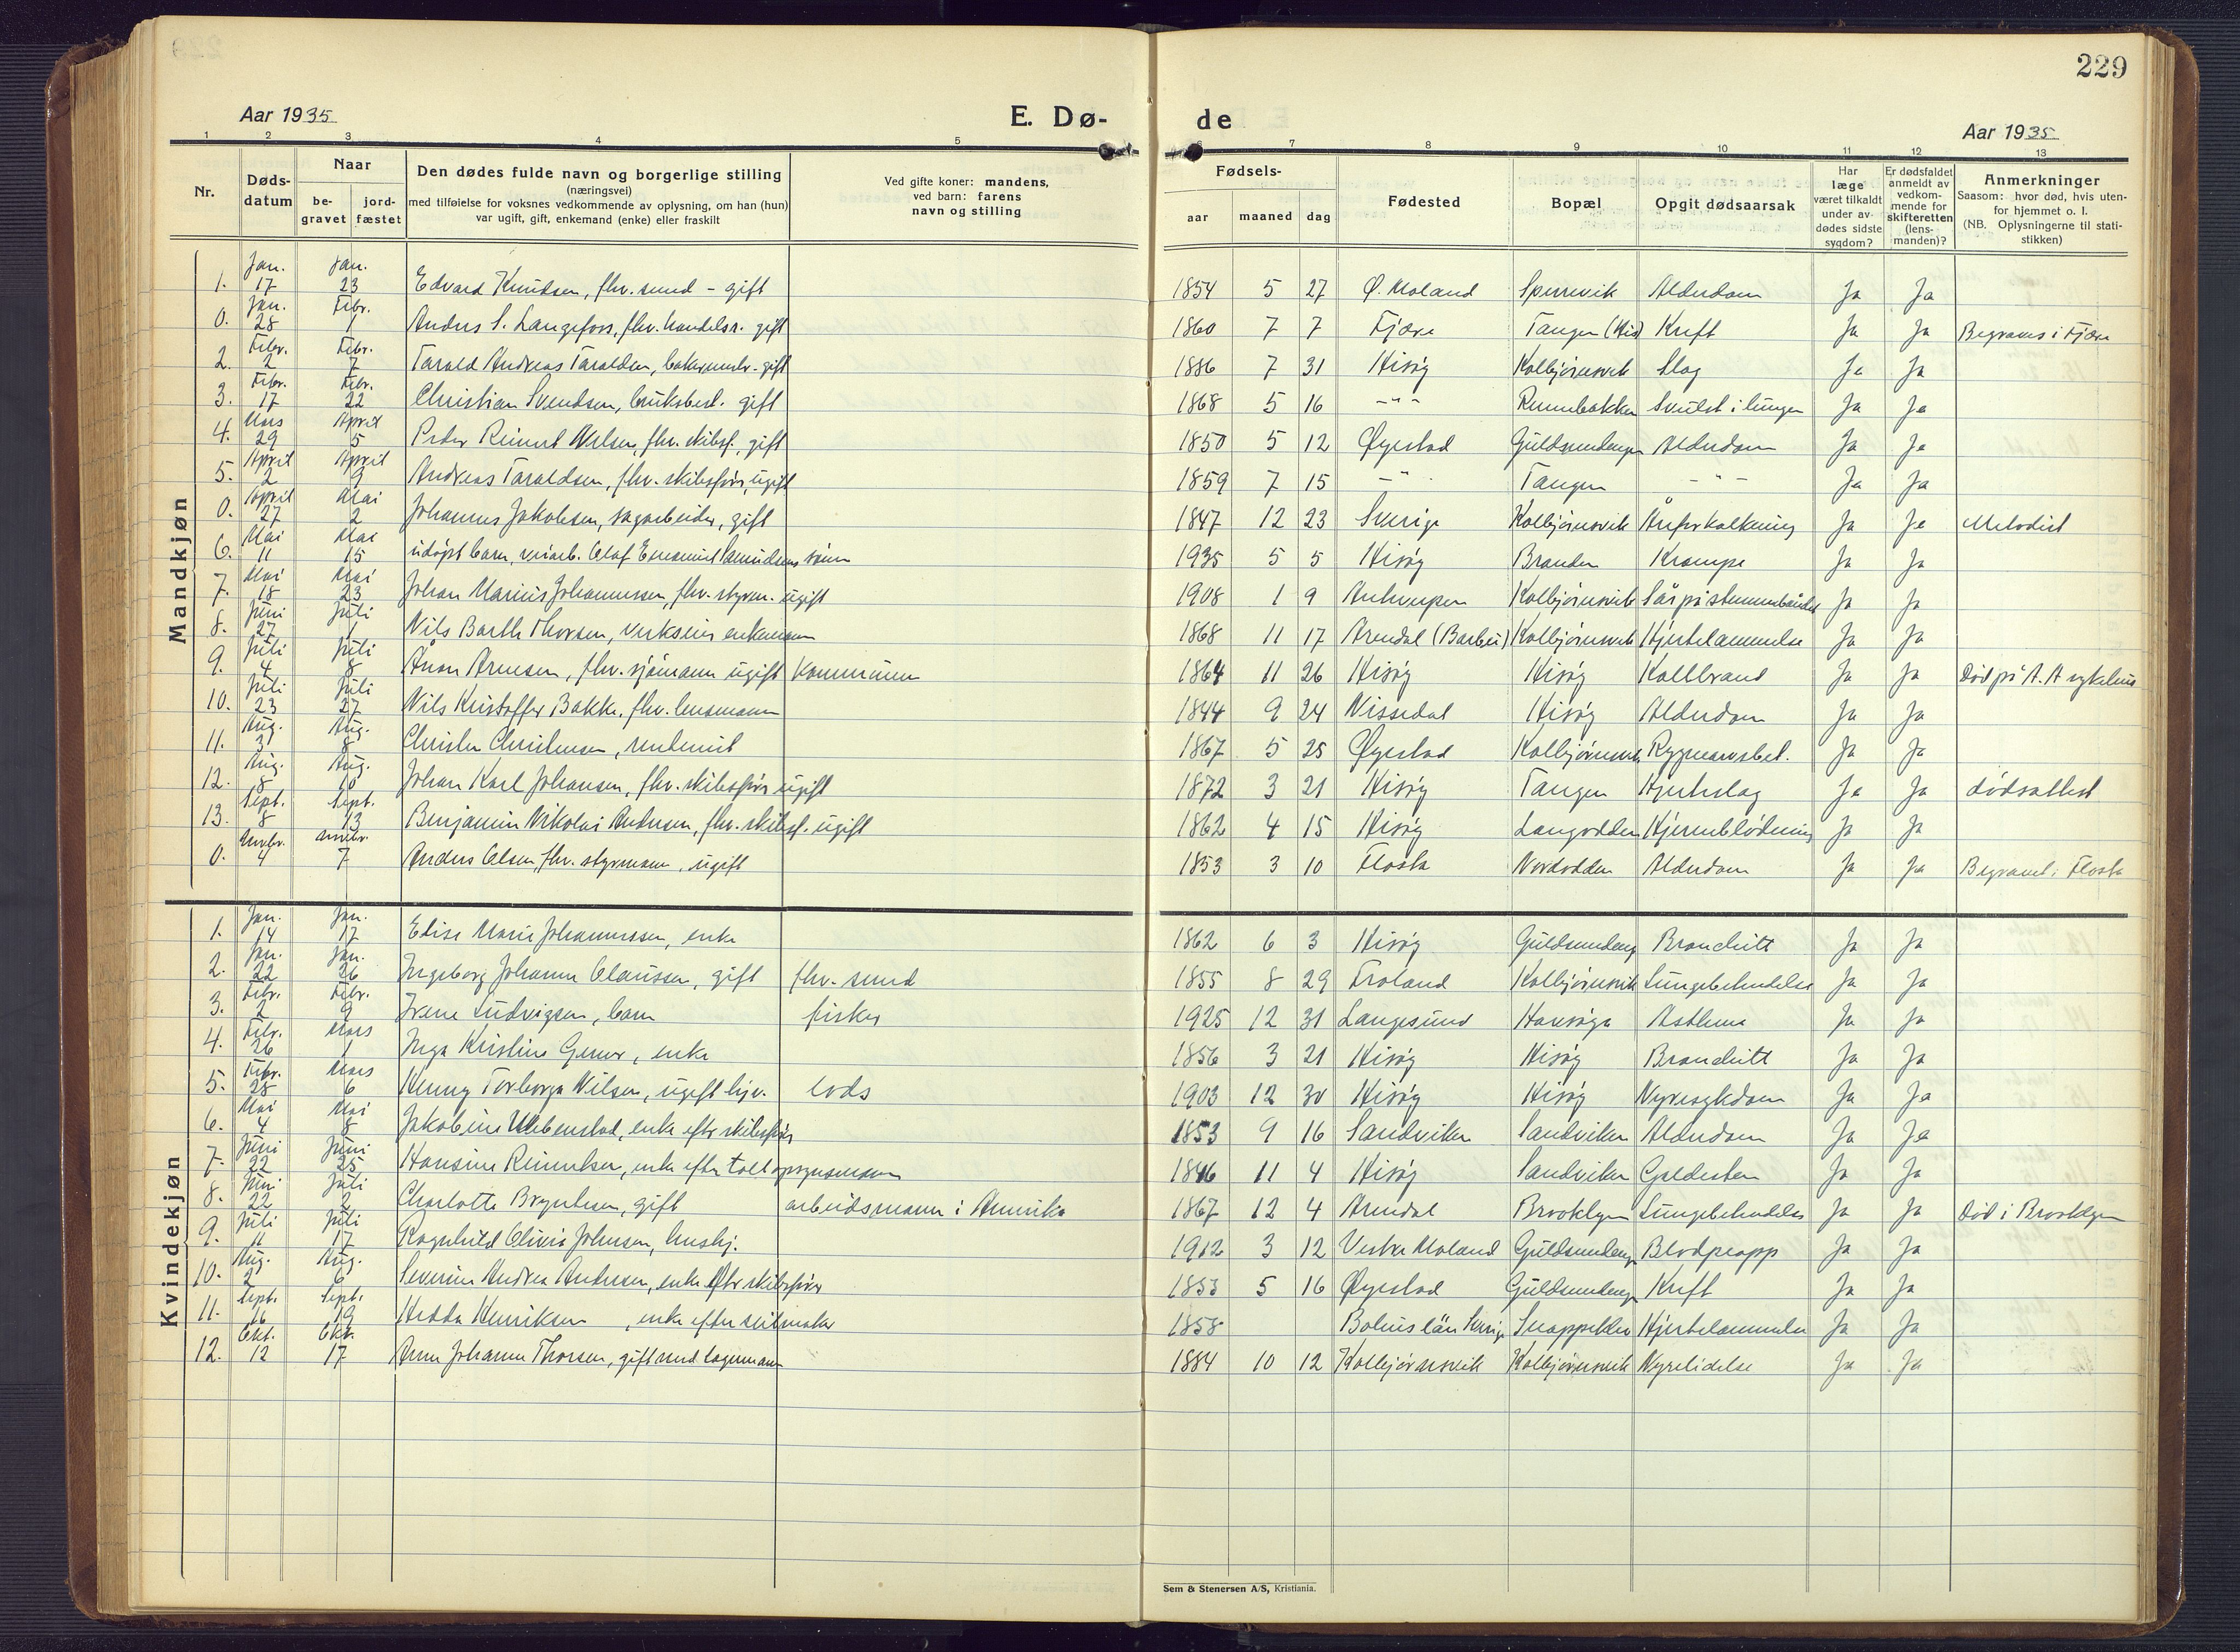 229
Aar 1935
E. Dø-
de
Aar 1935
1 2 3 4 5 6 7 8 9 10 11 12 13
Nr.
Døds-
datum
Naar
be-
gravet
jord-
fæstet
Den dødes fulde navn og borgerlige stilling
(næringsvei)
med tilføielse for voksnes vedkommende av oplysning, om han (hun)
var ugift, gift, enkemand (enke) eller fraskilt
Ved gifte koner: mandens,
ved barn: farens
navn og stilling
Fødsels-
aar maaned dag
Fødested
Bopæl
Opgit dødsaarsak
Har
læge
været tilkaldt
under av-
dødes sidste
sygdom?
Er dødsfaldet
anmeldt av
vedkom-
mende for
skifteretten
(lens-
manden)?
Anmerkninger
Saasom: hvor død, hvis uten-
for hjemmet o. l.
(NB. Oplysningerne til stati-
stikken)
Mandkjøn
1. Jan. 17 Jan. 23 Edvard Knudsen, fhv. smed - gift 1854 5 27 Ø. Moland Sperrevik Alderdom Ja Ja
0. Jan. 28 Febr. 1 Anders S. Langefoss, fhv. handelsr. gift 1860 7 7 Fjære Tangen (His) Kreft Ja Ja Begraves i Fjære
2. Febr. 2 Febr. 7 Tarald Andreas Taraldsen, gift 1886 7 31 Hisøy Kolbjørnsvik Slag Ja Ja
3. Febr. 17 Febr. 22 Christian Svendsen, bruksbest. gift 1868 5 16 -"- Svulst i lungen Ja Ja
4. Mars 29 April 5 Peder Reinert Nilsen, fhv. skibsf., gift 1850 5 12 Øyestad Guldsmedengen Alderdom Ja Ja
5. April 2 April 9 Andreas Taraldsen, fhv. skibsfører, ugift 1859 7 15 -"- Tangen -"- Ja Ja
0. April 27 Mai 2 Johannes Jakobsen, sagarbeider, gift 1847 12 23 Sverige Kolbjørnsvik Åreforkalkning Ja Ja Metodist
6. Mai 11 Mai 15 udøpt barn, Olaf Emanuel sønn 1935 5 5 Hisøy Branden Krampe Ja Ja
7. Mai 18 Mai 23 Johan Marius Johannessen, fhv. styrm. ugift 1908 1 9 Antwerpen Kolbjørnsvik Sår på stemmebåndet Ja Ja
8. Juni 27 Juli 1 Nils Barth Thorsen, verkseier enkemann 1868 11 17 Arendal (Barbu) Kolbjørnsvik Hjertelammelse Ja Ja
9. Juli 4 Juli 8 Ånon Arnesen, fhv. sjømann ugift Kommunen 1864 11 26 Hisøy Hisøy Koldbrand Ja Ja Død på A. A sykehus
10. Juli 23 Juli 27 Nils Kristoffer Bakke, fhv. lensmann 1844 9 24 Nissedal Hisøy Alderdom Ja Ja
11. Aug. 3 Aug. 8 Christen Christensen, rentenist 1867 5 25 Øyestad Kolbjørnsvik Ja Ja
12. Aug. 8 Aug. 10 Johan Karl Johansen, fhv. skibsfører ugift 1872 3 21 Hisøy Tangen Hjerteslag Ja Ja dødsattest
13. Sept. 8 Sept. 13 Benjamin Nikolai Andersen, fhv. skibsf. ugift 1862 4 15 Hisøy Langodden Hjerneblødning Ja Ja
0. Novbr. 4 Novbr. 7 Anders Olsen, fhv. styrmann, ugift 1853 3 10 Flosta Nordodden Alderdom Ja Ja Begravet i Flosta
Kvindekjøn
1. Jan. 14 Jan. 17 Elise Marie Johannessen, enke 1862 6 3 Hisøy Guldsmedeng Bronchitt Ja Ja
2. Jan. 22 Jan. 26 Ingeborg Johanne Claussen, gift fhv. smed 1855 8 29 Froland Kolbjørnsvik Lungebetendelse Ja Ja
3. Febr. 2 Febr. 9 Irene Ludvigsen, barn fisker 1925 12 31 Langesund Havsøya Asthma Ja Ja
4. Febr. 26 Mars 1 Inga Kristine enke 1856 3 21 Hisøy Hisøy Bronchitt Ja Ja
5. Febr. 28 Mars 6 Henny Torborga Nilsen, ugift hjv. lods 1903 12 30 Hisøy Hisøy Nyresykdom Ja Ja
6. Mai 4 Mai 8 Jakobine enke efter skibsfører 1853 9 16 Sandviken Sandviken Alderdom Ja Ja
7. Juni 22 Juni 25 Hansine Reinertsen, enke efter tollopsynsmann 1846 11 4 Hisøy Sandviken Galdesten Ja Ja
8. Juni 22 Juli 2 Charlotte Bryntesen, gift arbeidsmann i Amerika 1867 12 4 Arendal Brooklyn Lungebetendelse Ja Ja Død i Brooklyn
9. Juli 11 Juli 17 Ragnhild Olivia Johnsen, hushj. 1912 3 12 Vestre Moland Guldsmedeng Blodpropp Ja Ja
10. Aug. 2 Aug. 6 Severine Andrea Andersen, enke efter skibsfører 1853 5 16 Øyestad Guldsmedeng Kreft Ja Ja
11. Sept. 16 Sept. 19 Hedda Henriksen, enke efter seilmaker 1858 Bohus län Sverige Hjertelammelse Ja Ja
12. Okt. 12 Okt. 17 Anna Johanne Thorsen, gift med lagermann 1884 10 12 Kolbjørnsvik Kolbjørnsvik Nyrelidelse Ja Ja
Sem & Stenersen A/S, Kristiania.